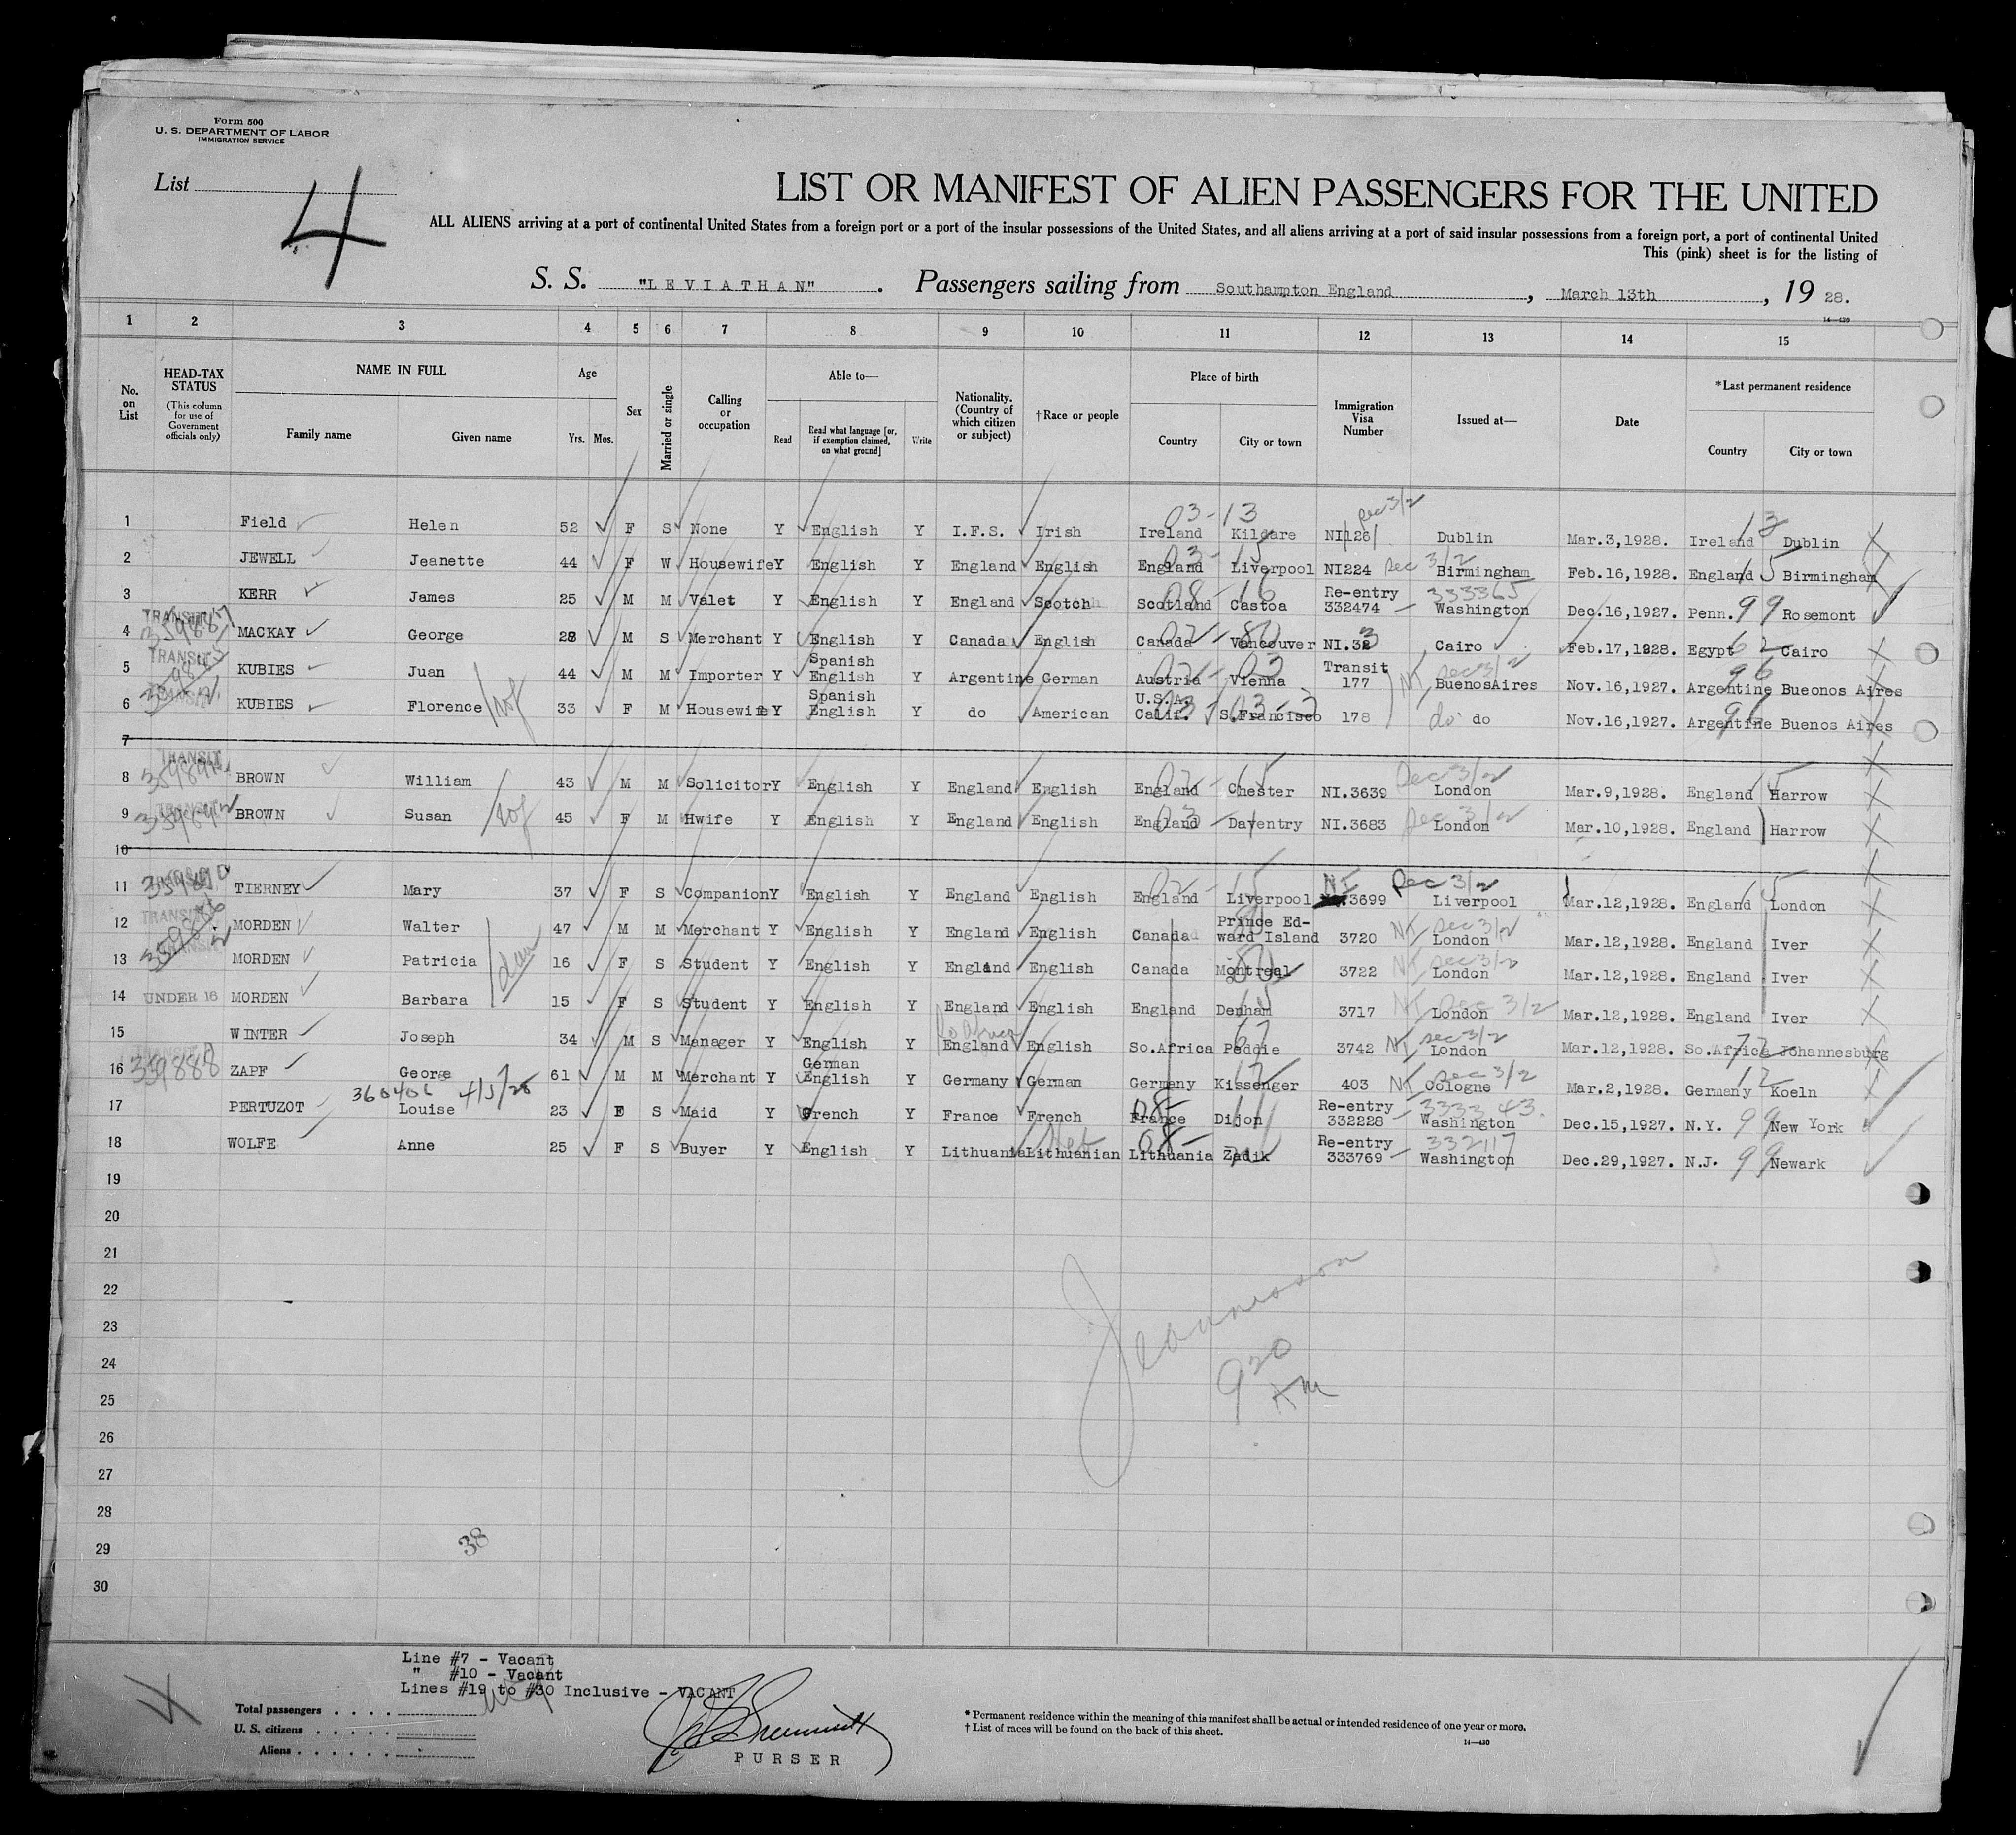 Form 500
U. S. DEPARTMENT OF LABOR
IMMIGRATION SERVICE
List 4
LIST OR MANIFEST OF ALIEN PASSENGERS FOR THE UNITED
ALL ALIENS arriving at a port of continental United States from a foreign port or a port of the insular possessions of the United States, and all aliens arriving at a port of said insular possessions from a foreign port, a port of continental United
This (pink) sheet is for the listing of
S. S. "LEVIATHAN". Passengers sailing from Southampton England, March 13th, 1928.
14—430
1 2 3 4 5 6 7 8 9 10 11 12 13 14 15
No. on List
HEAD-TAX STATUS
(This column for use of Government officials only)
NAME IN FULL
Family name Given name
Age
Yrs. Mos.
Sex
Married or single
Calling or occupation
Able to—
Read Read what language [or, if exemption claimed, on what ground] Write
Nationality. (Country of which citizen or subject)
†Race or people
Place of birth
Country City or town
Immigration Visa Number
Issued at—
Date
*Last permanent residence
Country City or town
1 Field Helen 52 F S None Y English Y I.F.S. Irish Ireland 03-13 Kildare NI126 Sec 3/2 Dublin Mar.3,1928. Ireland 13 Dublin
2 JEWELL Jeanette 44 F W Housewife Y English Y England English England 03-15 Liverpool NI224 Sec 3/2 Birmingham Feb.16,1928. England 15 Birmingham
3 KERR James 25 M M Valet Y English Y England Scotch Scotland 08-16 Castoa Re-entry 332474 333365 Washington Dec.16,1927. Penn. 99 Rosemont
4 TRANSIT 359887 MACKAY George 28 M S Merchant Y English Y Canada English Canada Vancouver NI.323 Cairo Feb.17,1928. Egypt 62 Cairo
5 TRANSIT KUBIES Juan 44 M M Importer Y Spanish English Y Argentine German Austria Vienna Transit 177 NI Sec 3/2 BuenosAires Nov.16,1927. Argentine 96 Bueonos Aires
6 TRANSIT KUBIES Florence 33 F M Housewife Y Spanish English Y do American U.S.A. Calif. S.Francisco 178 do do Nov.16,1927. Argentine 96 Buenos Aires
7
8 TRANSIT BROWN William 43 M M Solicitor Y English Y England English England Chester NI.3639 Sec 3/2 London Mar.9,1928. England 15 Harrow
9 TRANSIT BROWN Susan 45 F M Hwife Y English Y England English England Daventry NI.3683 Sec 3/2 London Mar.10,1928. England Harrow
10
11 359890 TIERNEY Mary 37 F S Companion Y English Y England English England Liverpool NI 3699 Sec 3/2 Liverpool Mar.12,1928. England 15 London
12 TRANSIT MORDEN Walter 47 M M Merchant Y English Y England English Canada Prince Edward Island 3720 NI Sec 3/2 London Mar.12,1928. England Iver
13 TRANSIT MORDEN Patricia 16 F S Student Y English Y England English Canada Montreal 3722 NI Sec 3/2 London Mar.12,1928. England Iver
14 UNDER 16 MORDEN Barbara 15 F S Student Y English Y England English England Denham 3717 NI Sec 3/2 London Mar.12,1928. England Iver
15 WINTER Joseph 34 M S Manager Y English Y England English So.Africa Peddie 3742 NI Sec 3/2 London Mar.12,1928. So.Africa 77 Johannesburg
16 359888 ZAPF George 61 M M Merchant Y German English Y Germany German Germany Kissenger 403 NI Sec 3/2 Cologne Mar.2,1928. Germany 12 Koeln
17 PERTUZOT 360406 4/5/28 Louise 23 F S Maid Y French Y France French France 08- Dijon Re-entry 332228 333343. Washington Dec.15,1927. N.Y. 99 New York
18 WOLFE Anne 25 F S Buyer Y English Y Lithuania Heb Lithuanian Lithuania 08- Zadik Re-entry 333769 332117 Washington Dec.29,1927. N.J. 99 Newark
19
20
21
22
23
24
25
26
27
28
29
30
920 AM
38
Line #7 - Vacant
" #10 - Vacant
Lines #19 to #30 Inclusive - VACANT
Total passengers
U. S. citizens
Aliens
PURSER
* Permanent residence within the meaning of this manifest shall be actual or intended residence of one year or more.
† List of races will be found on the back of this sheet.
14—430